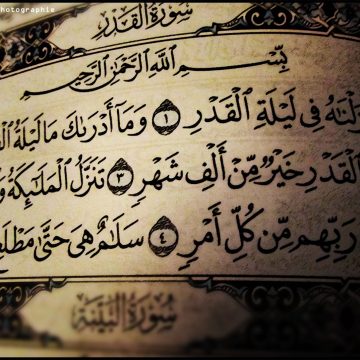 photographie
سُورَةُ القَدْرِ
بِسْمِ ٱللَّهِ ٱلرَّحْمَٰنِ ٱلرَّحِيمِ
فِى لَيْلَةِ ٱلْقَدْرِ ١ وَمَآ أَدْرَىٰكَ مَا لَيْلَةُ
ٱلْقَدْرِ خَيْرٌ مِّنْ أَلْفِ شَهْرٍ ٣ تَنَزَّلُ ٱلْمَلَٰٓئِكَةُ
رَبِّهِم مِّن كُلِّ أَمْرٍ ٤ سَلَٰمٌ هِىَ حَتَّىٰ مَطْلَعِ
سُورَةُ البَيِّنَةِ